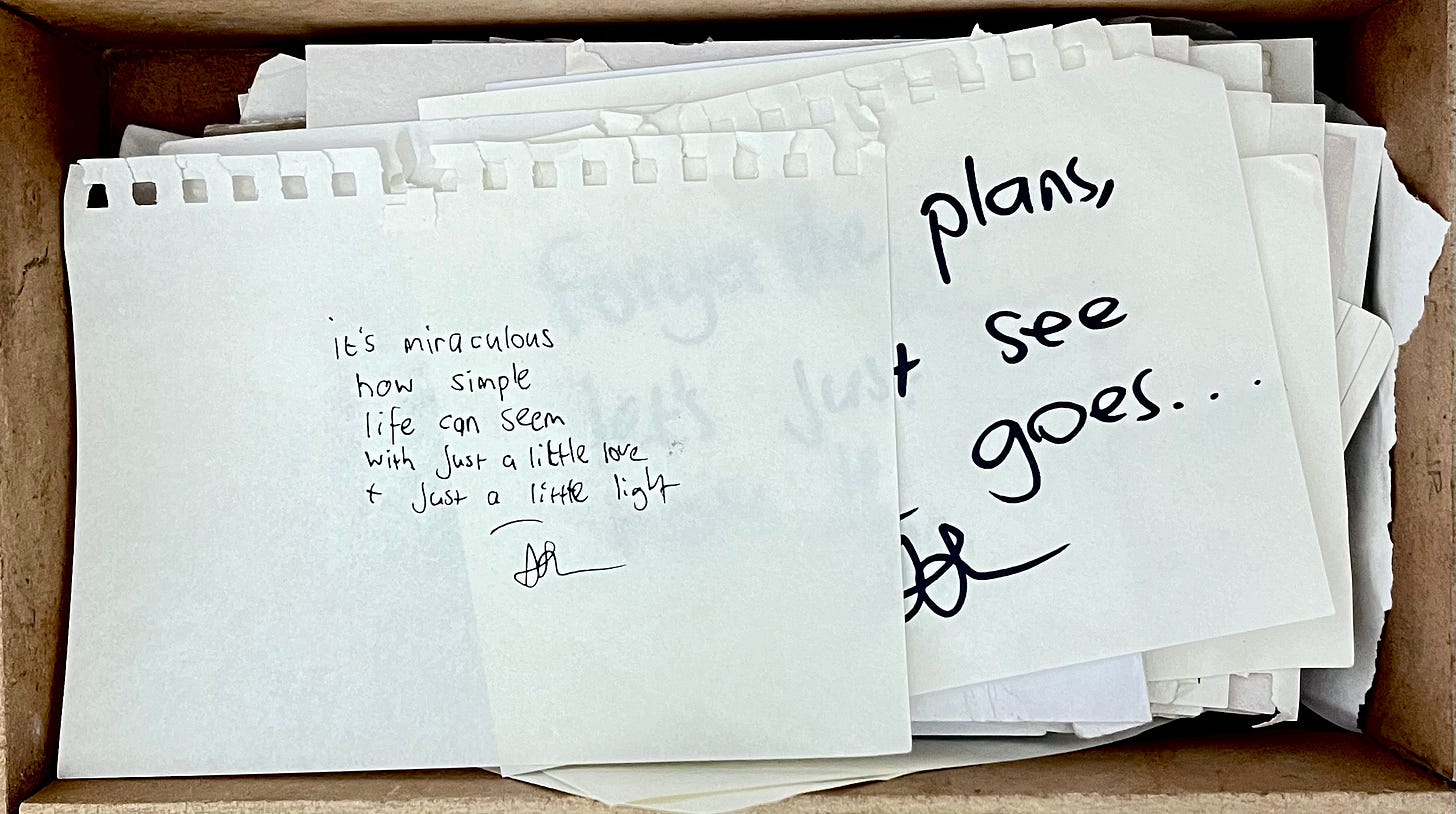 it's miraculous
how simple
life can seem
with just a little love
+ just a little light
Forget the plans,
let's just see
goes...